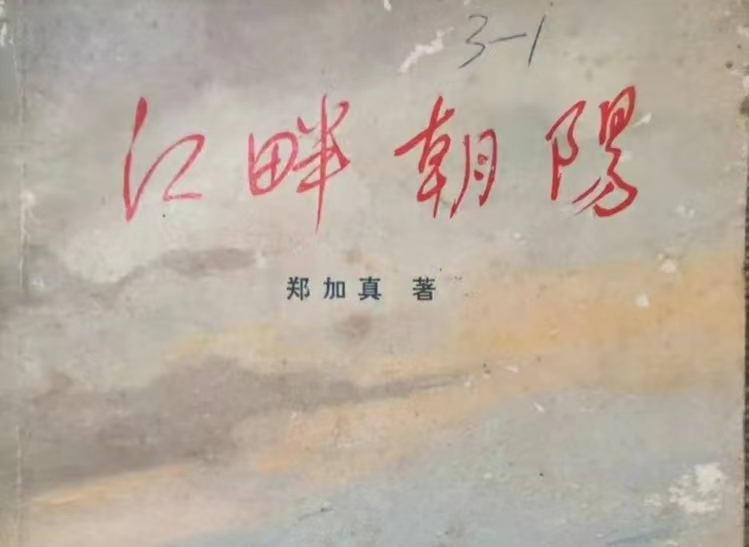 3-1
江畔朝陽
郑加真 著